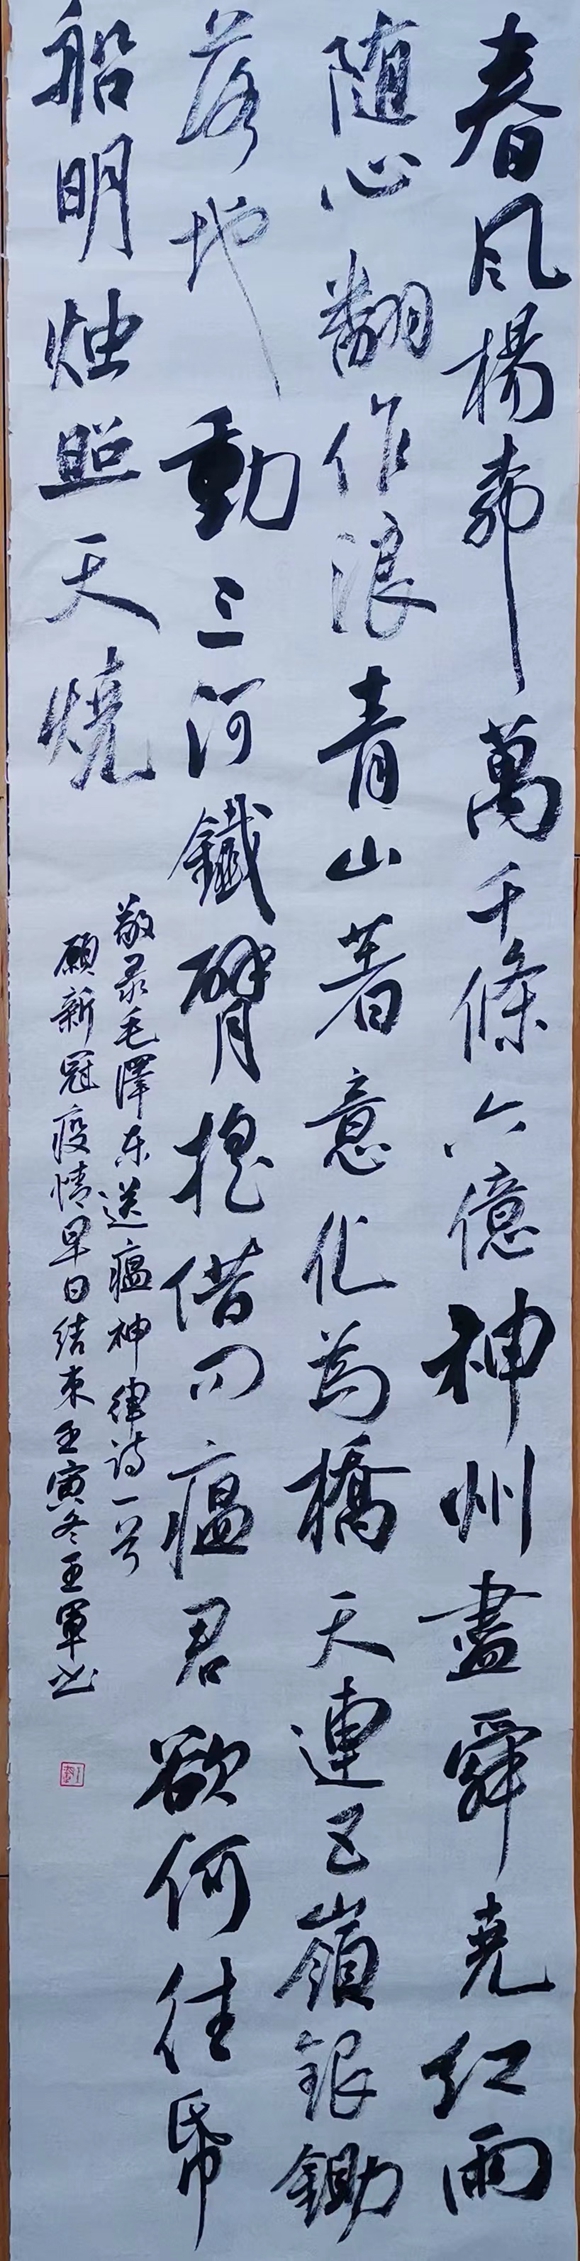 春风楊柳萬千條六億神州盡舜尧红雨
随心翻作浪青山著意化为橋天連五嶺銀鋤
落地動三河鐵臂摇借问瘟君欲何往帋
船明烛照天烧
敬录毛澤东送瘟神律诗一首
願新冠疫情早日结束壬寅冬王軍书